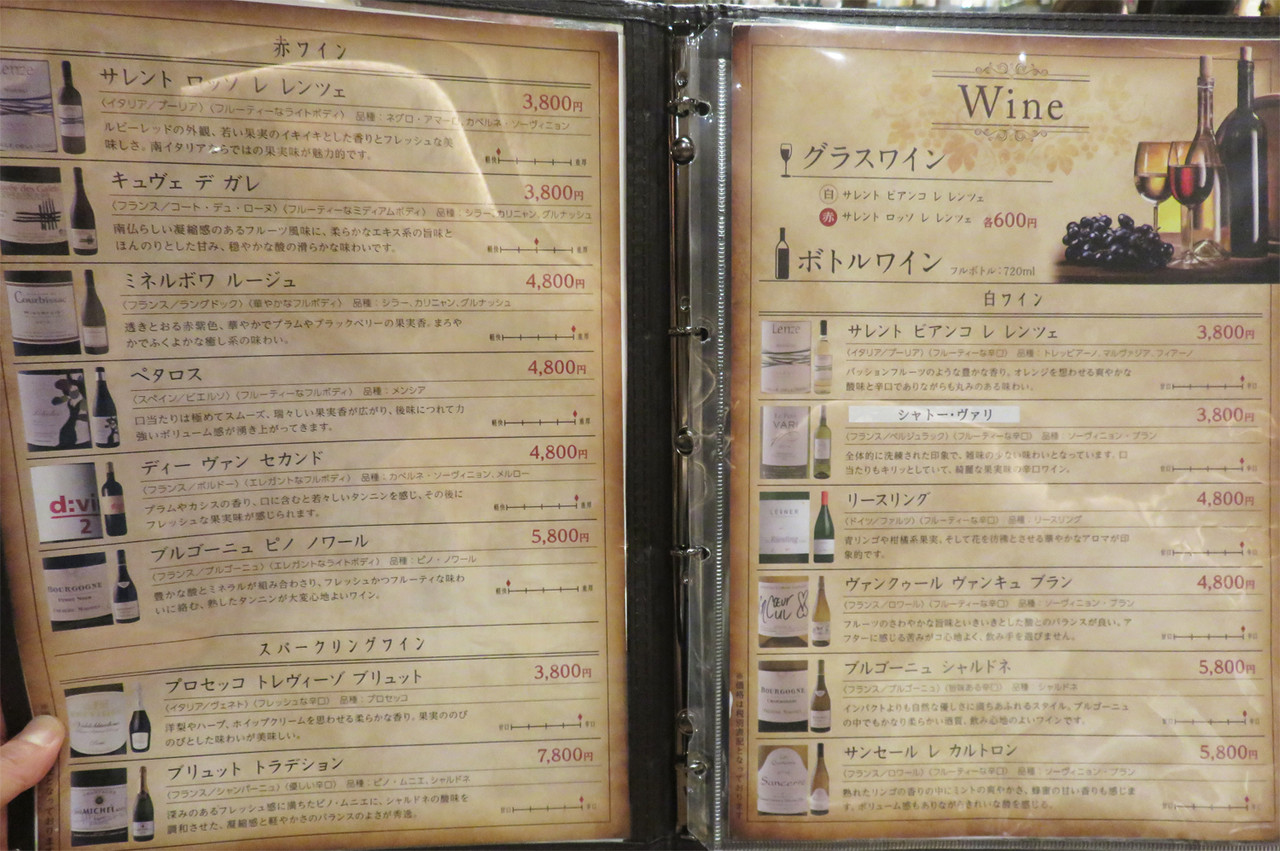 赤ワイン
サレント ロッソ レ レンツェ
3,800円
〈イタリア／プーリア〉〈フルーティーなライトボディ〉 品種：ネグロ・アマーロ、カベルネ・ソーヴィニョン
ルビーレッドの外観、若い果実のイキイキとした香りとフレッシュな美
味しさ。南イタリアならではの果実味が魅力的です。
軽快 重厚
キュヴェ デ ガレ
3,800円
〈フランス／コート・デュ・ローヌ〉〈フルーティーなミディアムボディ〉 品種：シラー、カリニャン、グルナッシュ
南仏らしい凝縮感のあるフルーツ風味に、柔らかなエキス系の旨味と
ほんのりとした甘み、穏やかな酸の滑らかな味わいです。
軽快 重厚
Courbissac
ミネルボワ ルージュ
4,800円
〈フランス／ラングドック〉〈華やかなフルボディ〉 品種：シラー、カリニャン、グルナッシュ
透きとおる赤紫色、華やかでプラムやブラックベリーの果実香。まろや
かでふくよかな癒し系の味わい。
軽快 重厚
ペタロス
4,800円
〈スペイン／ビエルソ〉〈フルーティーなフルボディ〉 品種：メンシア
口当たりは極めてスムーズ、瑞々しい果実香が広がり、後味につれて力
強いボリューム感が湧き上がってきます。
軽快 重厚
d:vi
2
ディー ヴァン セカンド
4,800円
〈フランス／ボルドー〉〈エレガントなフルボディ〉 品種：カベルネ・ソーヴィニョン、メルロー
プラムやカシスの香り、口に含むと若々しいタンニンを感じ、その後に
フレッシュな果実味が感じられます。
軽快 重厚
BOURGOGNE
ブルゴーニュ ピノ ノワール
5,800円
〈フランス／ブルゴーニュ〉〈エレガントなライトボディ〉 品種：ピノ・ノワール
豊かな酸とミネラルが組み合わさり、フレッシュかつフルーティな味わ
いに絡む、熟したタンニンが大変心地よいワイン。
軽快 重厚
スパークリングワイン
プロセッコ トレヴィーゾ ブリュット
3,800円
〈イタリア／ヴェネト〉〈フレッシュな辛口〉 品種：プロセッコ
洋梨やハーブ、ホイップクリームを思わせる柔らかな香り。果実ののび
のびとした味わいが美味しい。
甘口 辛口
MICHEL
ブリュット トラデション
7,800円
〈フランス／シャンパーニュ〉〈優しい辛口〉 品種：ピノ・ムニエ、シャルドネ
深みのあるフレッシュ感に満ちたピノ・ムニエに、シャルドネの酸味を
調和させた、凝縮感と軽やかさのバランスのよさが秀逸。
甘口 辛口
Wine
グラスワイン
白 サレント ビアンコ レ レンツェ
赤 サレント ロッソ レ レンツェ 各600円
ボトルワイン フルボトル：720ml
白ワイン
Lenze
サレント ビアンコ レ レンツェ
3,800円
〈イタリア／プーリア〉〈フルーティーな辛口〉 品種：トレッビアーノ、マルヴァジア、フィアーノ
パッションフルーツのような豊かな香り。オレンジを想わせる爽やかな
酸味と辛口でありながらも丸みのある味わい。
甘口 辛口
VARI
シャトー・ヴァリ
3,800円
〈フランス／ベルジュラック〉〈フルーティーな辛口〉 品種：ソーヴィニョン・ブラン
全体的に洗練された印象で、雑味の少ない味わいとなっています。口
当たりもキリッとしていて、綺麗な果実味の辛口ワイン。
甘口 辛口
Riesling
リースリング
4,800円
〈ドイツ／ファルツ〉〈フルーティーな辛口〉 品種：リースリング
青リンゴや柑橘系果実、そして花を彷彿とさせる華やかなアロマが印
象的です。
甘口 辛口
ヴァンクゥール ヴァンキュ ブラン
4,800円
〈フランス／ロワール〉〈フルーティーな辛口〉 品種：ソーヴィニョン・ブラン
フルーツのさわやかな旨味といきいきとした酸とのバランスが良い。ア
フターに感じる苦みがここ心地よく、飲み手を選びません。
甘口 辛口
BOURGOGNE
ブルゴーニュ シャルドネ
5,800円
〈フランス／ブルゴーニュ〉〈旨味ある辛口〉 品種 シャルドネ
インパクトよりも自然な優しさに満ちあふれるスタイル。ブルゴーニュ
の中でもかなり柔らかい感質、飲み心地のよいワインです。
甘口 辛口
Sancerre
サンセール レ カルトロン
5,800円
〈フランス／ロワール〉〈フルーティーな辛口〉 品種：ソーヴィニョン・ブラン
熟れたリンゴの香りの中にミントの爽やかさ、蜂蜜の甘い香りも感じま
す。ボリューム感もありながらきれいな酸を感じる。
甘口 辛口
※価格は税別表記となっております